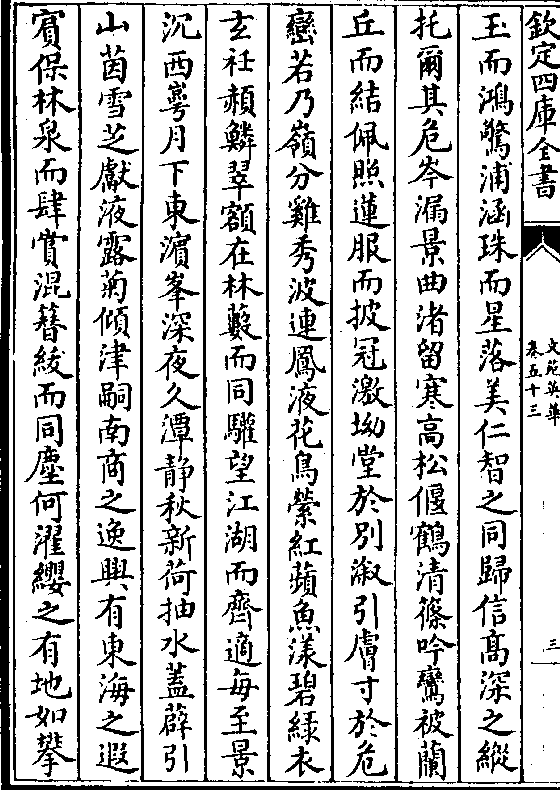 欽定四庫全書
文苑英華
卷五十三
三
玉而鴻驚浦涵珠而星落美仁智之同歸信髙深之縱
托爾其危岑漏景曲渚留寒高松偃鶴清篠吟鸞被蘭
丘而結佩照蓮服而披冠激坳堂於別溆引膚寸於危
巒若乃嶺分雞秀波連鳳液花鳥縈紅蘋魚漾碧緑衣
玄衽頳鱗翠額在林藪而同驩望江湖而齊適每至景
沉西崿月下東濵峯深夜久潭静秋新荷抽水蓋薜引
山茵雪芝獻液露菊傾津嗣南商之逸興有東海之遐
賔保林泉而肆賞混簪紱而同塵何濯纓之有地如攀